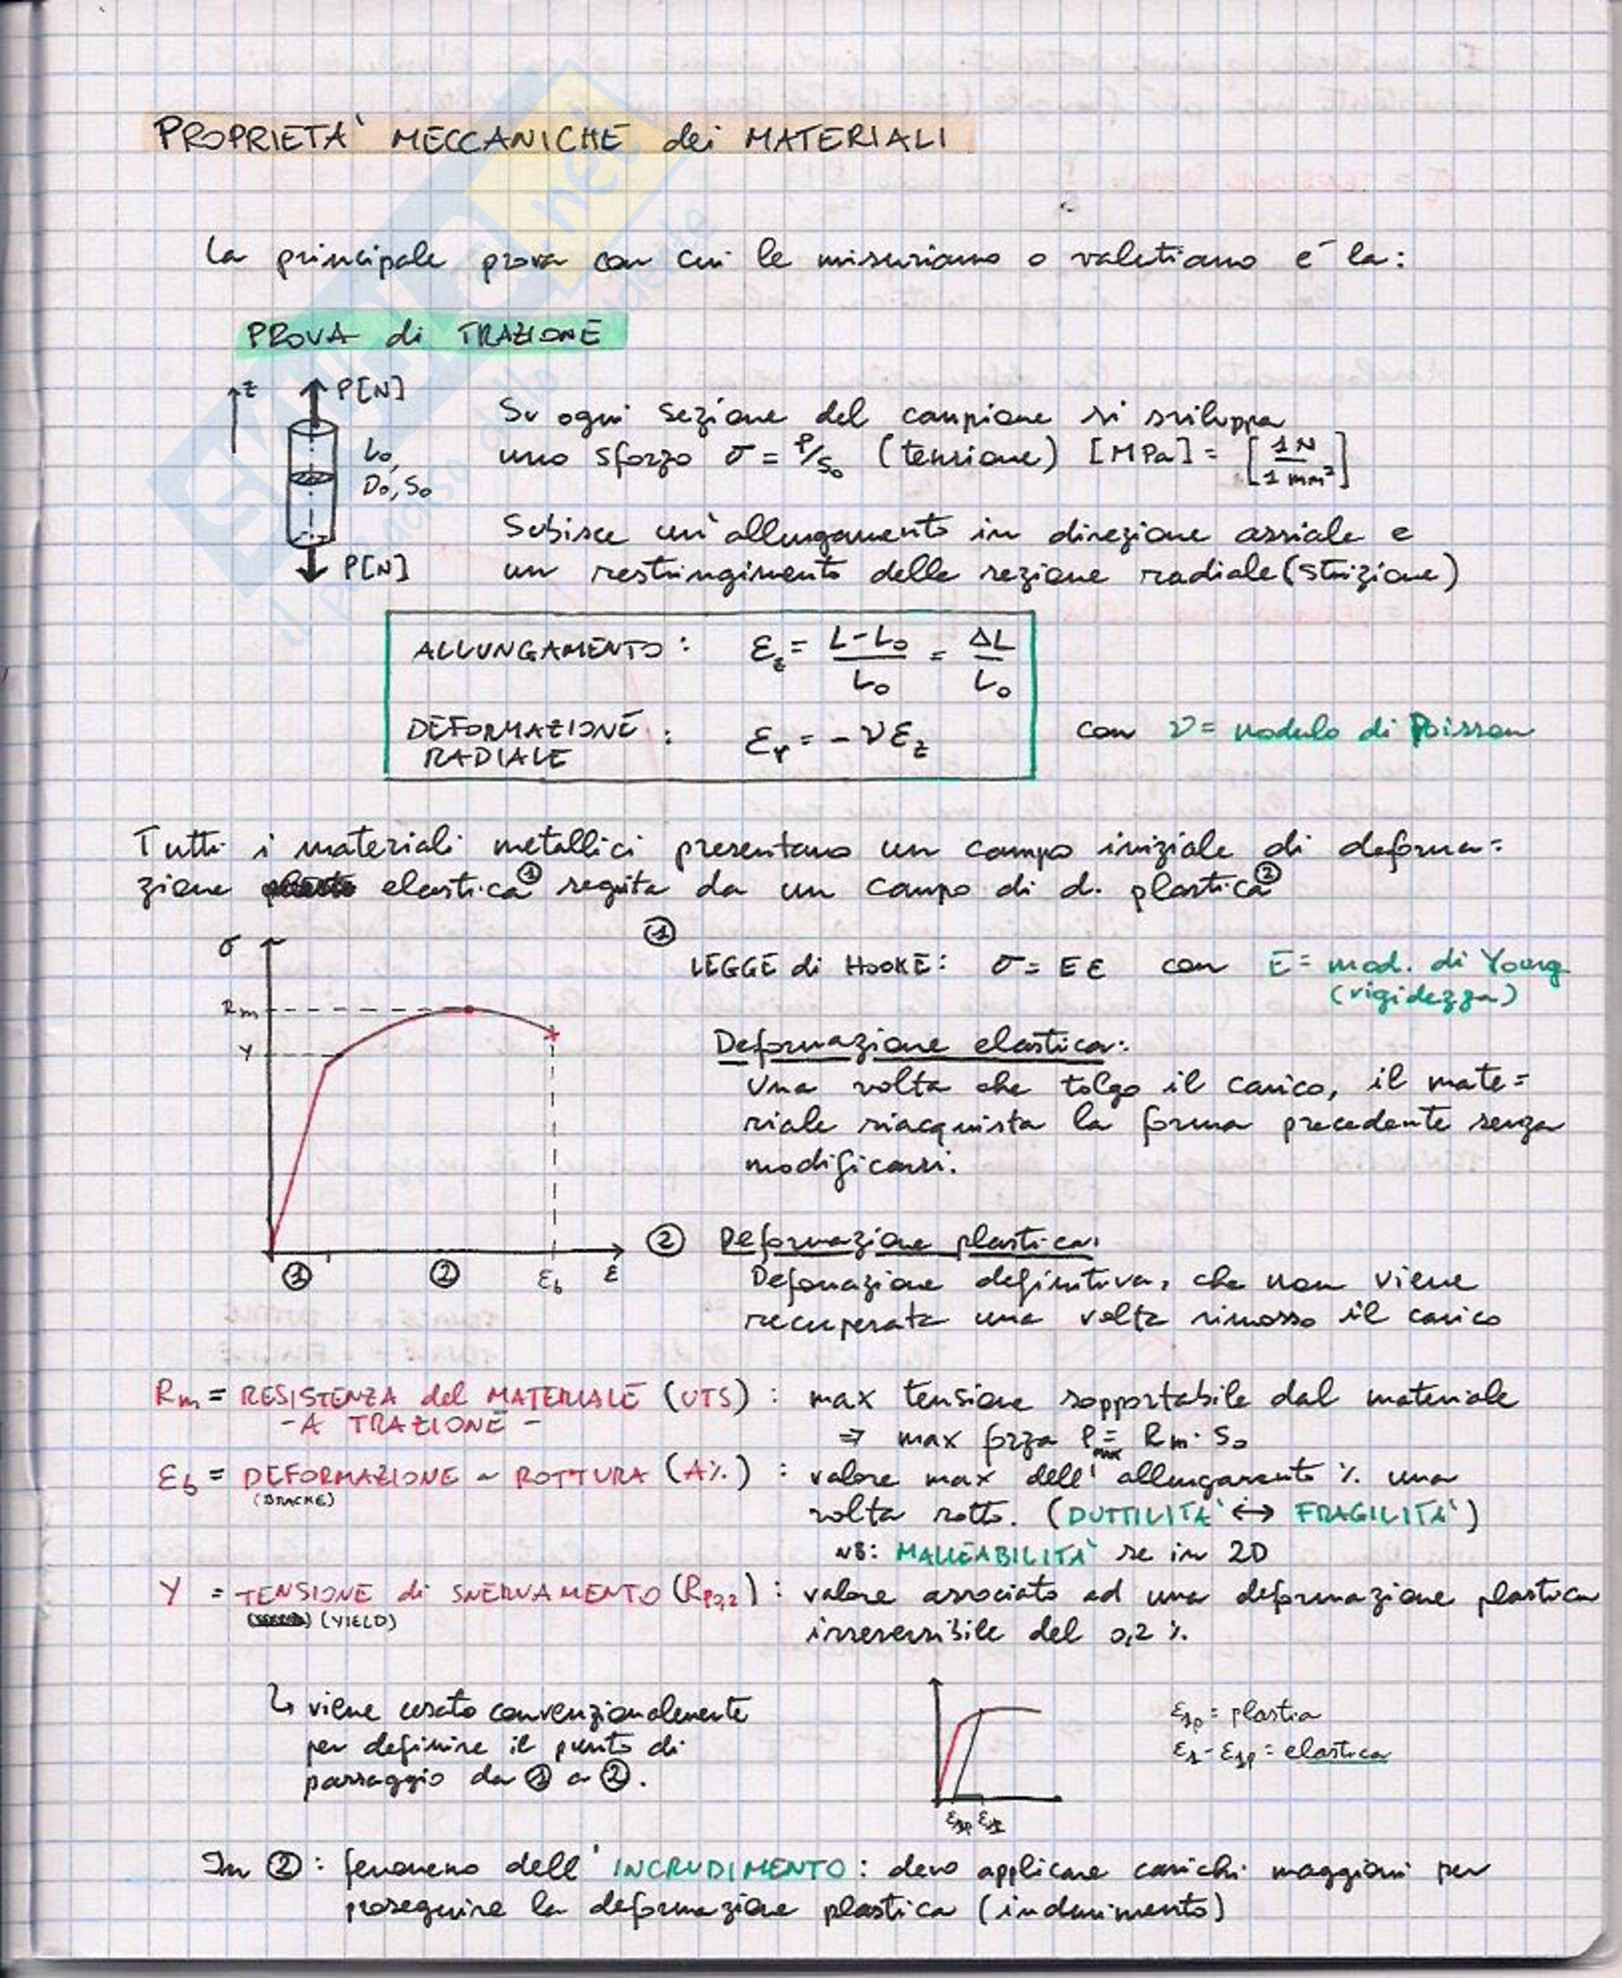 PROPRIETA' MECCANICHE dei MATERIALI
La principale prova con cui le misuriamo o valutiamo e' la:
PROVA di TRAZIONE
z
P[N]
L₀,
D₀, S₀
P[N]
Su ogni sezione del campione si sviluppa
uno sforzo σ = P/S₀ (tensione) [MPa] = [1N / 1 mm²]
Subisce un'allungamento in direzione assiale e
un restringimento della sezione radiale (strizione)
ALLUNGAMENTO: ε_z = (L-L₀)/L₀ = ΔL/L₀
DEFORMAZIONE RADIALE: ε_r = -νε_z
con ν = modulo di Poisson
Tutti i materiali metallici presentano un campo iniziale di deforma=
zione elastica① seguita da un campo di d. plastica②
σ
Rm
Y
① ② εb ε
①
LEGGE di HOOKE: σ = Eε con E = mod. di Young
(rigidezza)
Deformazione elastica:
Una volta che tolgo il carico, il mate=
riale riacquista la forma precedente senza
modificarsi.
② Deformazione plastica:
Defomazione definitiva, che non viene
recuperata una volta rimosso il carico
Rm = RESISTENZA del MATERIALE (UTS): max tensione sopportabile dal materiale
- A TRAZIONE -
⇒ max forza Pmax = Rm · S₀
εb = DEFORMAZIONE a ROTTURA (A%): valore max dell'allungamento % una
(BRACKE)
volta rotto. (DUTTILITA' ↔ FRAGILITA')
NB: MALLEABILITA' se in 2D
Y = TENSIONE di SNERVAMENTO (Rp0,2): valore associato ad una deformazione plastica
(YIELD)
irreversibile del 0,2 %.
↳ viene usato convenzionalmente
per definire il punto di
passaggio da ① a ②.
ε1p ε1
ε1p = plastica
ε1 - ε1p = elastica
In ②: fenomeno dell'INCRUDIMENTO: devo applicare carichi maggiori per
proseguire la deformazione plastica (indurimento)